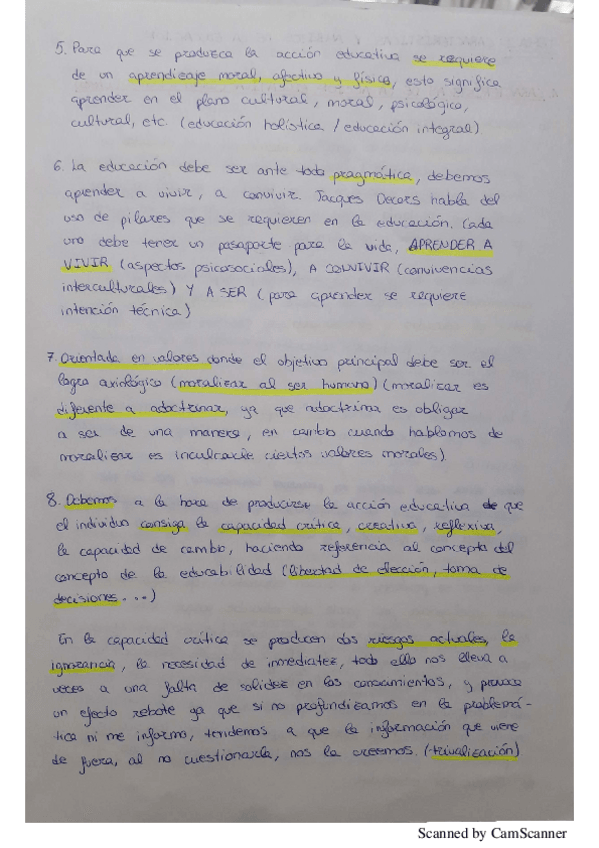 5. Para que se produzca la acción educativa se requiere
de un aprendizaje moral, afectivo y físico, esto significa
aprender en el plano cultural, moral, psicológico,
cultural, etc. (educación holística / educación integral)
6. La educación debe ser ante todo pragmática, debemos
aprender a vivir, a convivir. Jacques Decors habla del
uso de pilares que se requieren en la educación. Cada
uno debe tener un pasaporte para la vida, APRENDER A
VIVIR (aspectos psicosociales), A CONVIVIR (convivencias
interculturales) Y A SER (para aprender se requiere
intención técnica)
7. Orientada en valores donde el objetivo principal debe ser el
logro axiológico (moralizar al ser humano) (moralizar es
diferente a adoctrinar, ya que adoctrina es obligar
a ser de una manera, en cambio cuando hablamos de
moralizar es inculcarle ciertos valores morales).
8. Debemos a la hora de producirse la acción educativa de que
el individuo consiga la capacidad crítica, creativa, reflexiva,
la capacidad de cambio, haciendo referencia al concepto del
concepto de la educabilidad (libertad de elección, toma de
decisiones...)
En la capacidad crítica se producen dos riesgos actuales, la
ignorancia, la necesidad de inmediatez, todo ello nos lleva a
veces a una falta de solidez en los conocimientos, y provoca
un efecto rebote ya que si no profundizamos en la problemá-
tica ni me informo, tendemos a que la información que viene
de fuera, al no cuestionarla, nos la creemos. (trivialización)
Scanned by CamScanner